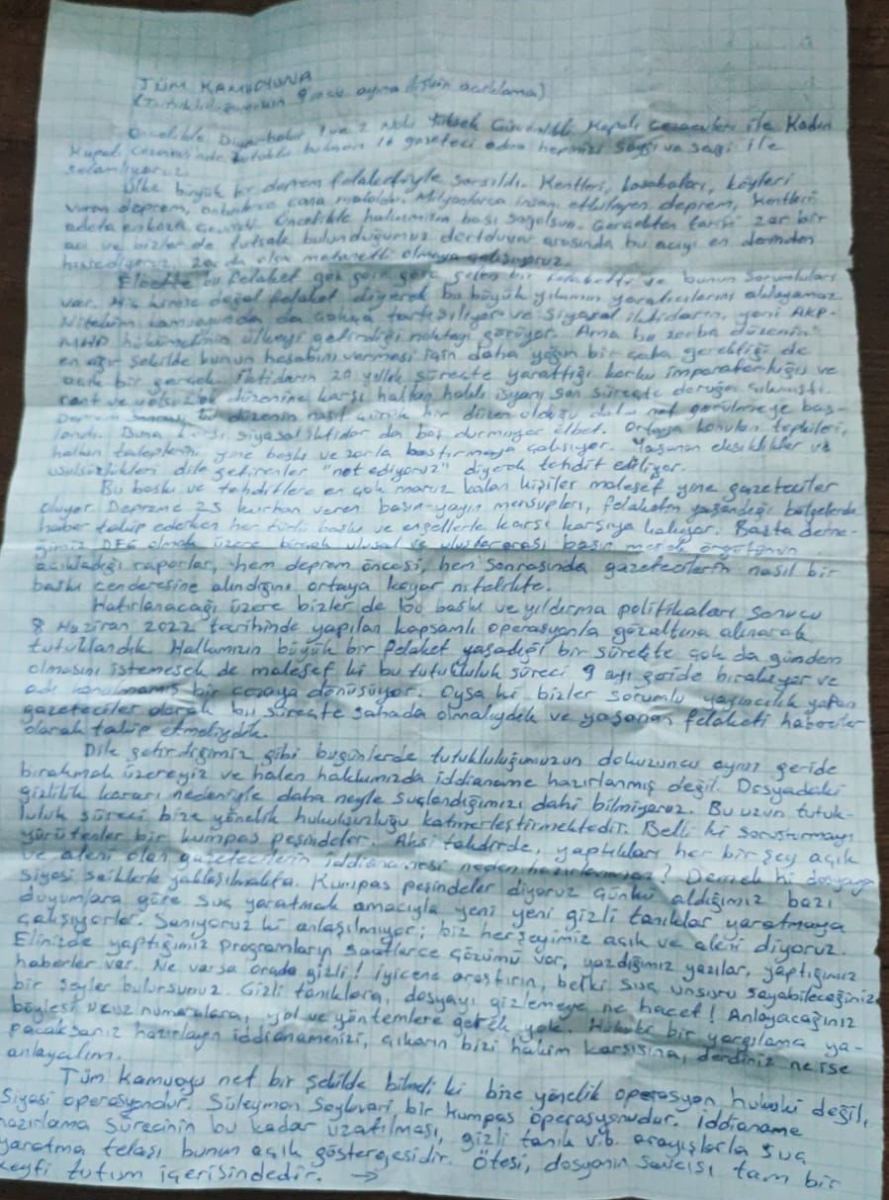 TÜM KAMUOYUNA
(Tutukluluğumuzun 9'uncu ayına ilişkin açıklama)
Öncelikle Diyarbakır 1 ve 2 Nolu Yüksek Güvenlikli Kapalı Cezaevleri ile Kadın
Kapalı Cezaevi'nde tutuklu bulunan 16 gazeteci adına hepinizi saygı ve sevgi ile
selamlıyoruz.
Ülke büyük bir deprem felaketiyle sarsıldı. Kentleri, kasabaları, köyleri
vuran deprem, onbinlerce cana maloldu. Milyonlarca insanı etkileyen deprem, kentleri
adeta enkaza çevirdi. Öncelikle halkımızın başı sağolsun. Gerçekten tarifi zor bir
acı ve bizler de tutsak bulunduğumuz dört duvar arasında bu acıyı en derinden
hissediyoruz, zor da olsa metanetli olmaya çalışıyoruz.
Elbette bu felaket göz göre göre gelen bir felaketti ve bunun sorumluları
var. Hiç kimse doğal felaket diyerek bu büyük yıkımın yaratıcılarını aklayamaz.
Nitekim kamuoyunda da çokça tartışılıyor ve siyasal iktidarın, yani AKP-
MHP hükümetinin ülkeyi getirdiği noktayı görüyor. Ama bu zorba düzenin
en ağır şekilde bunun hesabını vermesi için daha yoğun bir çaba gerektiği de
açık bir gerçek. İktidarın 20 yıllık süreçte yarattığı korku imparatorluğu ve
rant ve yolsuzluk düzenine karşı halkın haklı isyanı son süreçte doruğa çıkmıştı.
Deprem sonrası bu düzenin nasıl çürük bir düzen olduğu daha net görülmeye baş-
landı. Buna karşı siyasal iktidar da boş durmuyor elbet. Ortaya konulan tepkileri,
halkın taleplerini yine baskı ve zorla bastırmaya çalışıyor. Yaşanan eksiklikler ve
usulsüzlükleri dile getirenler "not ediyoruz" diyerek tehdit ediliyor.
Bu baskı ve tehditlere en çok maruz kalan kişiler malesef yine gazeteciler
oluyor. Depreme 25 kurban veren basın-yayın mensupları, felaketin yaşandığı bölgelerde
haber takip ederken her türlü baskı ve engellerle karşı karşıya kalıyor. Başta derne-
ğimiz DFG olmak üzere birçok ulusal ve uluslararası basın meslek örgütünün
açıkladığı raporlar, hem deprem öncesi, hem sonrasında gazetecilerin nasıl bir
baskı cenderesine alındığını ortaya koyar nitelikte.
Hatırlanacağı üzere bizler de bu baskı ve yıldırma politikaları sonucu
8 Haziran 2022 tarihinde yapılan kapsamlı operasyonla gözaltına alınarak
tutuklandık. Halkımızın büyük bir felaket yaşadığı bir süreçte çok da gündem
olmasını istemesek de malesef ki bu tutukluluk süreci 9 ayı geride bırakıyor ve
adı konulmamış bir cezaya dönüşüyor. Oysa ki bizler sorumlu yayıncılık yapan
gazeteciler olarak bu süreçte sahada olmalıydık ve yaşanan felaketi haberciler
olarak takip etmeliydik.
Dile getirdiğimiz gibi bugünlerde tutukluluğumuzun dokuzuncu ayını geride
bırakmak üzereyiz ve halen hakkımızda iddianame hazırlanmış değil. Dosyadaki
gizlilik kararı nedeniyle daha neyle suçlandığımızı dahi bilmiyoruz. Bu uzun tutuk-
luluk süreci bize yönelik hukuksuzluğu katmerleştirmektedir. Belli ki soruşturmayı
yürütenler bir kumpas peşindeler. Aksi takdirde, yaptıkları her bir şey açık
ve aleni olan gazetecilerin iddianamesi neden hazırlanmasın? Demek ki dosyaya
siyasi saiklerle yaklaşılmakta. Kumpas peşindeler diyoruz çünkü aldığımız bazı
duyumlara göre suç yaratmak amacıyla yeni yeni gizli tanıklar yaratmaya
çalışıyorlar. Sanıyoruz ki anlaşılmıyor; biz herşeyimiz açık ve aleni diyoruz.
Elinizde yaptığımız programların saatlerce çözümü var, yazdığımız yazılar, yaptığımız
haberler var. Ne varsa orada gizli! İyicene araştırın, belki suç unsuru sayabileceğiniz
bir şeyler bulursunuz. Gizli tanıklara, dosyayı gizlemeye ne hacet! Anlayacağınız
böylesi ucuz numaralara, yol ve yöntemlere gerek yok. Hukuki bir yargılama ya-
pacaksanız hazırlayın iddianamenizi, çıkarın bizi hakim karşısına, derdiniz ne ise
anlayalım.
Tüm kamuoyu net bir şekilde bilmeli ki bize yönelik operasyon hukuki değil,
siyasi operasyondur. Süleyman Soyluvari bir kumpas operasyonudur. İddianame
hazırlama sürecinin bu kadar uzatılması, gizli tanık v.b. arayışlarla suç
yaratma telaşı bunun açık göstergesidir. Ötesi, dosyanın savcısı tam bir
keyfi tutum içerisindedir. →